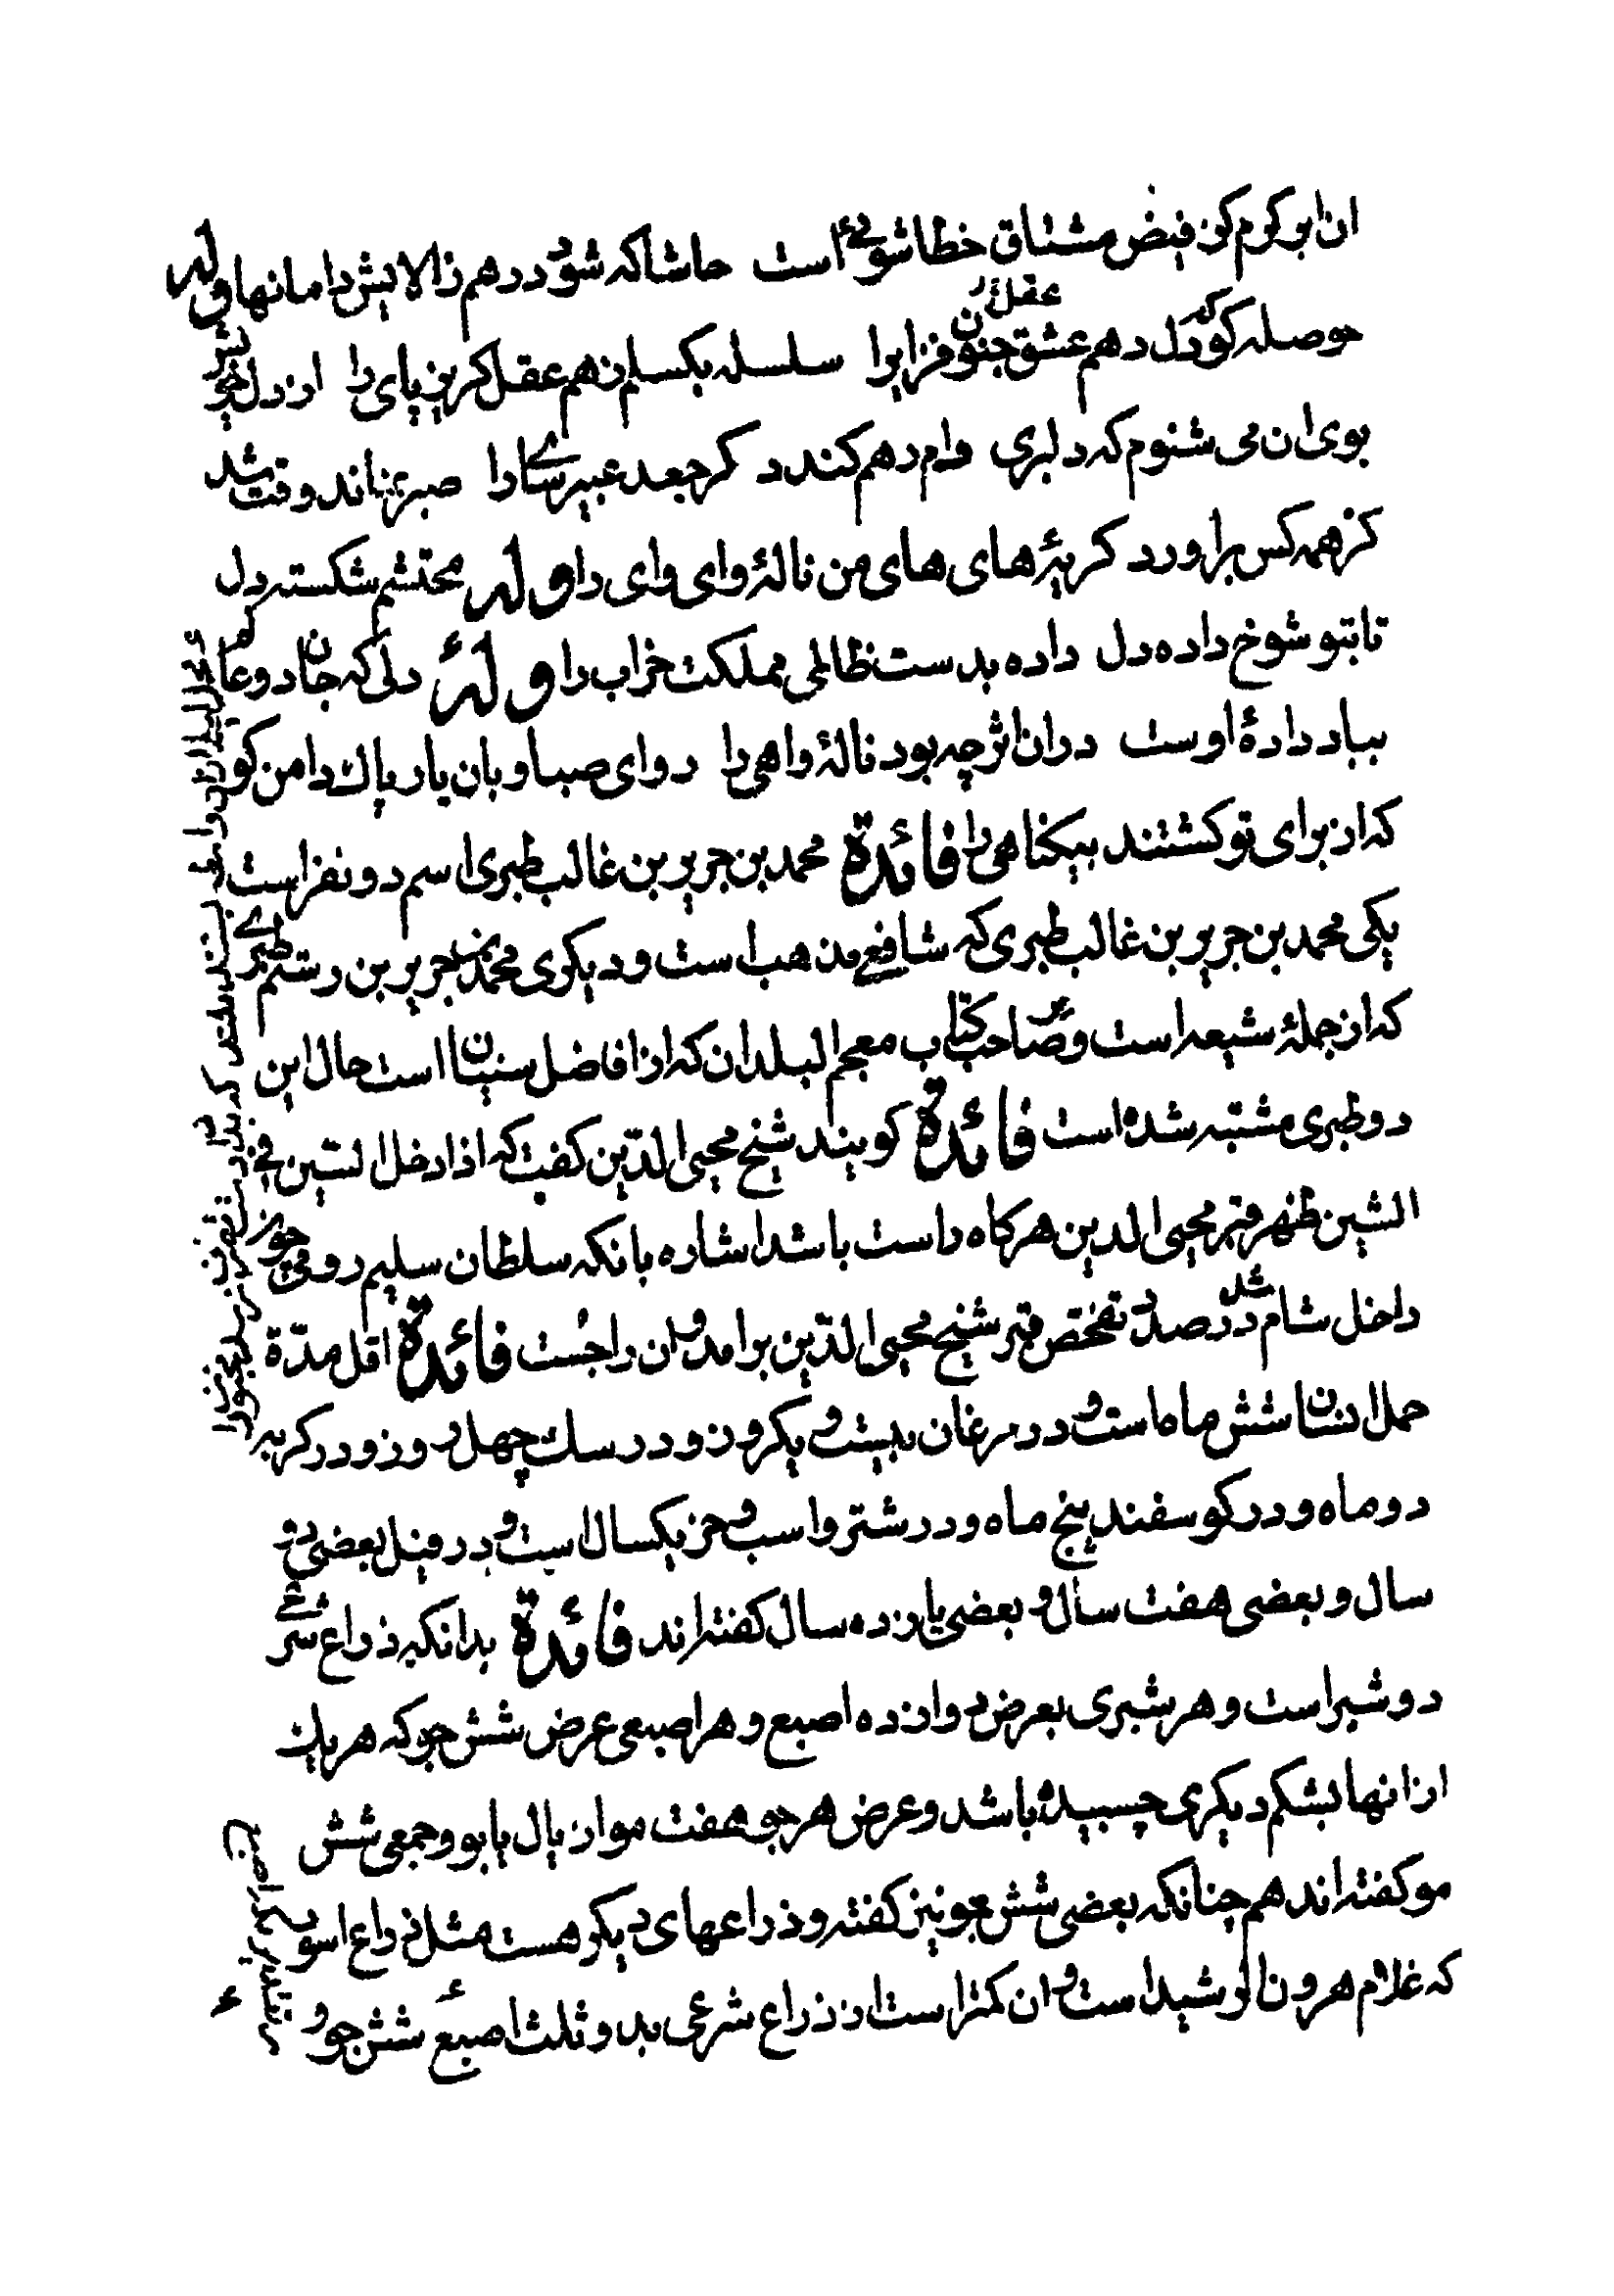 ان ابر کرم کز فیض مشتاق خطا شوئی است حاشا که شود درهم ز الایش دامانها وله
حوصله کو که دل دهم عشق جنون فزایرا سلسله بکسلم ز هم عقل کریز پای را از دل خویش
بوی ان می شنوم که دلبری وام دهم کند د کر جعد عبیر سای را صبر نماند وقت شد
کز همه کس براورد کریهٔ های های من نالهٔ وای وای را وله محتشم شکسته دل
تا بتو شوخ داده دل داده بدست ظالمی مملکت خراب را وله دلی که جان دو عالم
بباد دادهٔ اوست دران اثر چه بود نالهٔ واهی را روای صبا و بان یار پاک دامن کو
که از برای تو کشتند بیکناهی را فائدة محمد بن جریر بن غالب طبری اسم دو نفر است
یکی محمد بن جریر بن غالب طبری که شافعی مذهب است و دیکری محمد بن جریر بن رستم طبری
که از جملهٔ شیعه است و صاحب کتاب معجم البلدان که از افاضل سنیان است حال این
دو طبری مشتبه شده است فائدة کویند شیخ محیی الدّین کفت که اذا دخل السّین فی
الشین ظهر قبر محیی الدین هرکاه راست باشد اشاره بانکه سلطان سلیم رومی چون
داخل شام شد در صدد تفحّص قبر شیخ محیی الدّین برامد و ان را جُست فائدة اقل مدّة
حمل انسان شش ماه است و در مرغان بیست و یکروز و در سک چهل روز و در کربه
دو ماه و در کوسفند پنج ماه و در شتر و اسب و خر یکسال است و در فیل بعضی دو
سال و بعضی هفت سال و بعضی یازده سال کفته اند فائدة بدانکه ذراع شرعی
دو شبر است و هر شبری بعرض دوازده اصبع و هر اصبعی عرض شش جو که هر یک
از انها بشکم دیکری چسبیده باشد و عرض هر جو هفت مو از یال یابو و جمعی شش
مو کفته اند هم چنانکه بعضی شش جو نیز کفته و ذراعهای دیکر هست مثل ذراع اسود
که غلام هرون الرشید است و ان کمتر است از ذراع شرعی بدو ثلث اصبع شش جو و